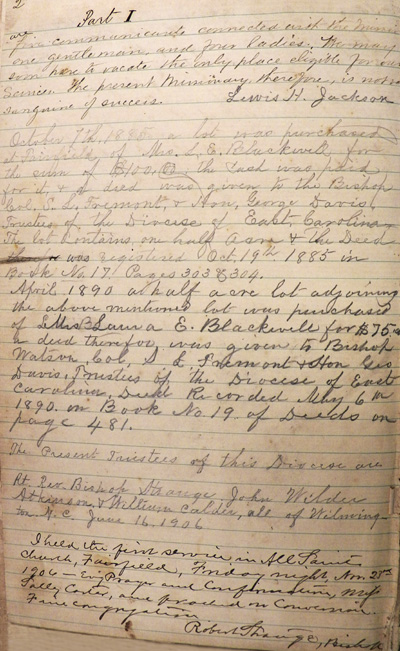 2
Part I
are
five communicants connected with the Mission
one gentleman, and four ladies. We may
soon have to vacate the only place eligible for our
Services. The present Missionary, therefore, is not
sanguine of success. Lewis H. Jackson
October 7th, 1885 a lot was purchased
at Fairfield, of Mrs. L. E. Blackwell for
the sum of $100.00 the cash was paid
for it, & a deed was given to the Bishop
Col. S. L. Fremont, & Hon. George Davis,
Trustees of the Diocese of East Carolina.
The lot contains one half acre & the Deed
was registered Oct. 19th 1885 in
Book No. 17 Pages 303 & 304.
April 1890 a half acre lot adjoining
the above mentioned lot was purchased
of Mrs Laura E. Blackwell for $75
a deed therefor, was given to Bishop
Watson, Col. S L. Fremont & Hon Geo
Davis, Trustees of the Diocese of East
Carolina. Deed Recorded May 6th
1890. in Book No. 19 of Deeds on
page 481.
The Present Trustees of this Diocese are
Rt. Rev. Bishop Strange John Wilder
Atkinson & William Calder, all of Wilming-
ton N.C. June 16. 1906
I held the first service in All Saints
Church, Fairfield, Friday night, Nov. 23rd
1906 — Evg Prayer and Confirmation, Miss
Sally Carter, and preached on Conversion.
Fair congregation
Robert Strange, Bishop